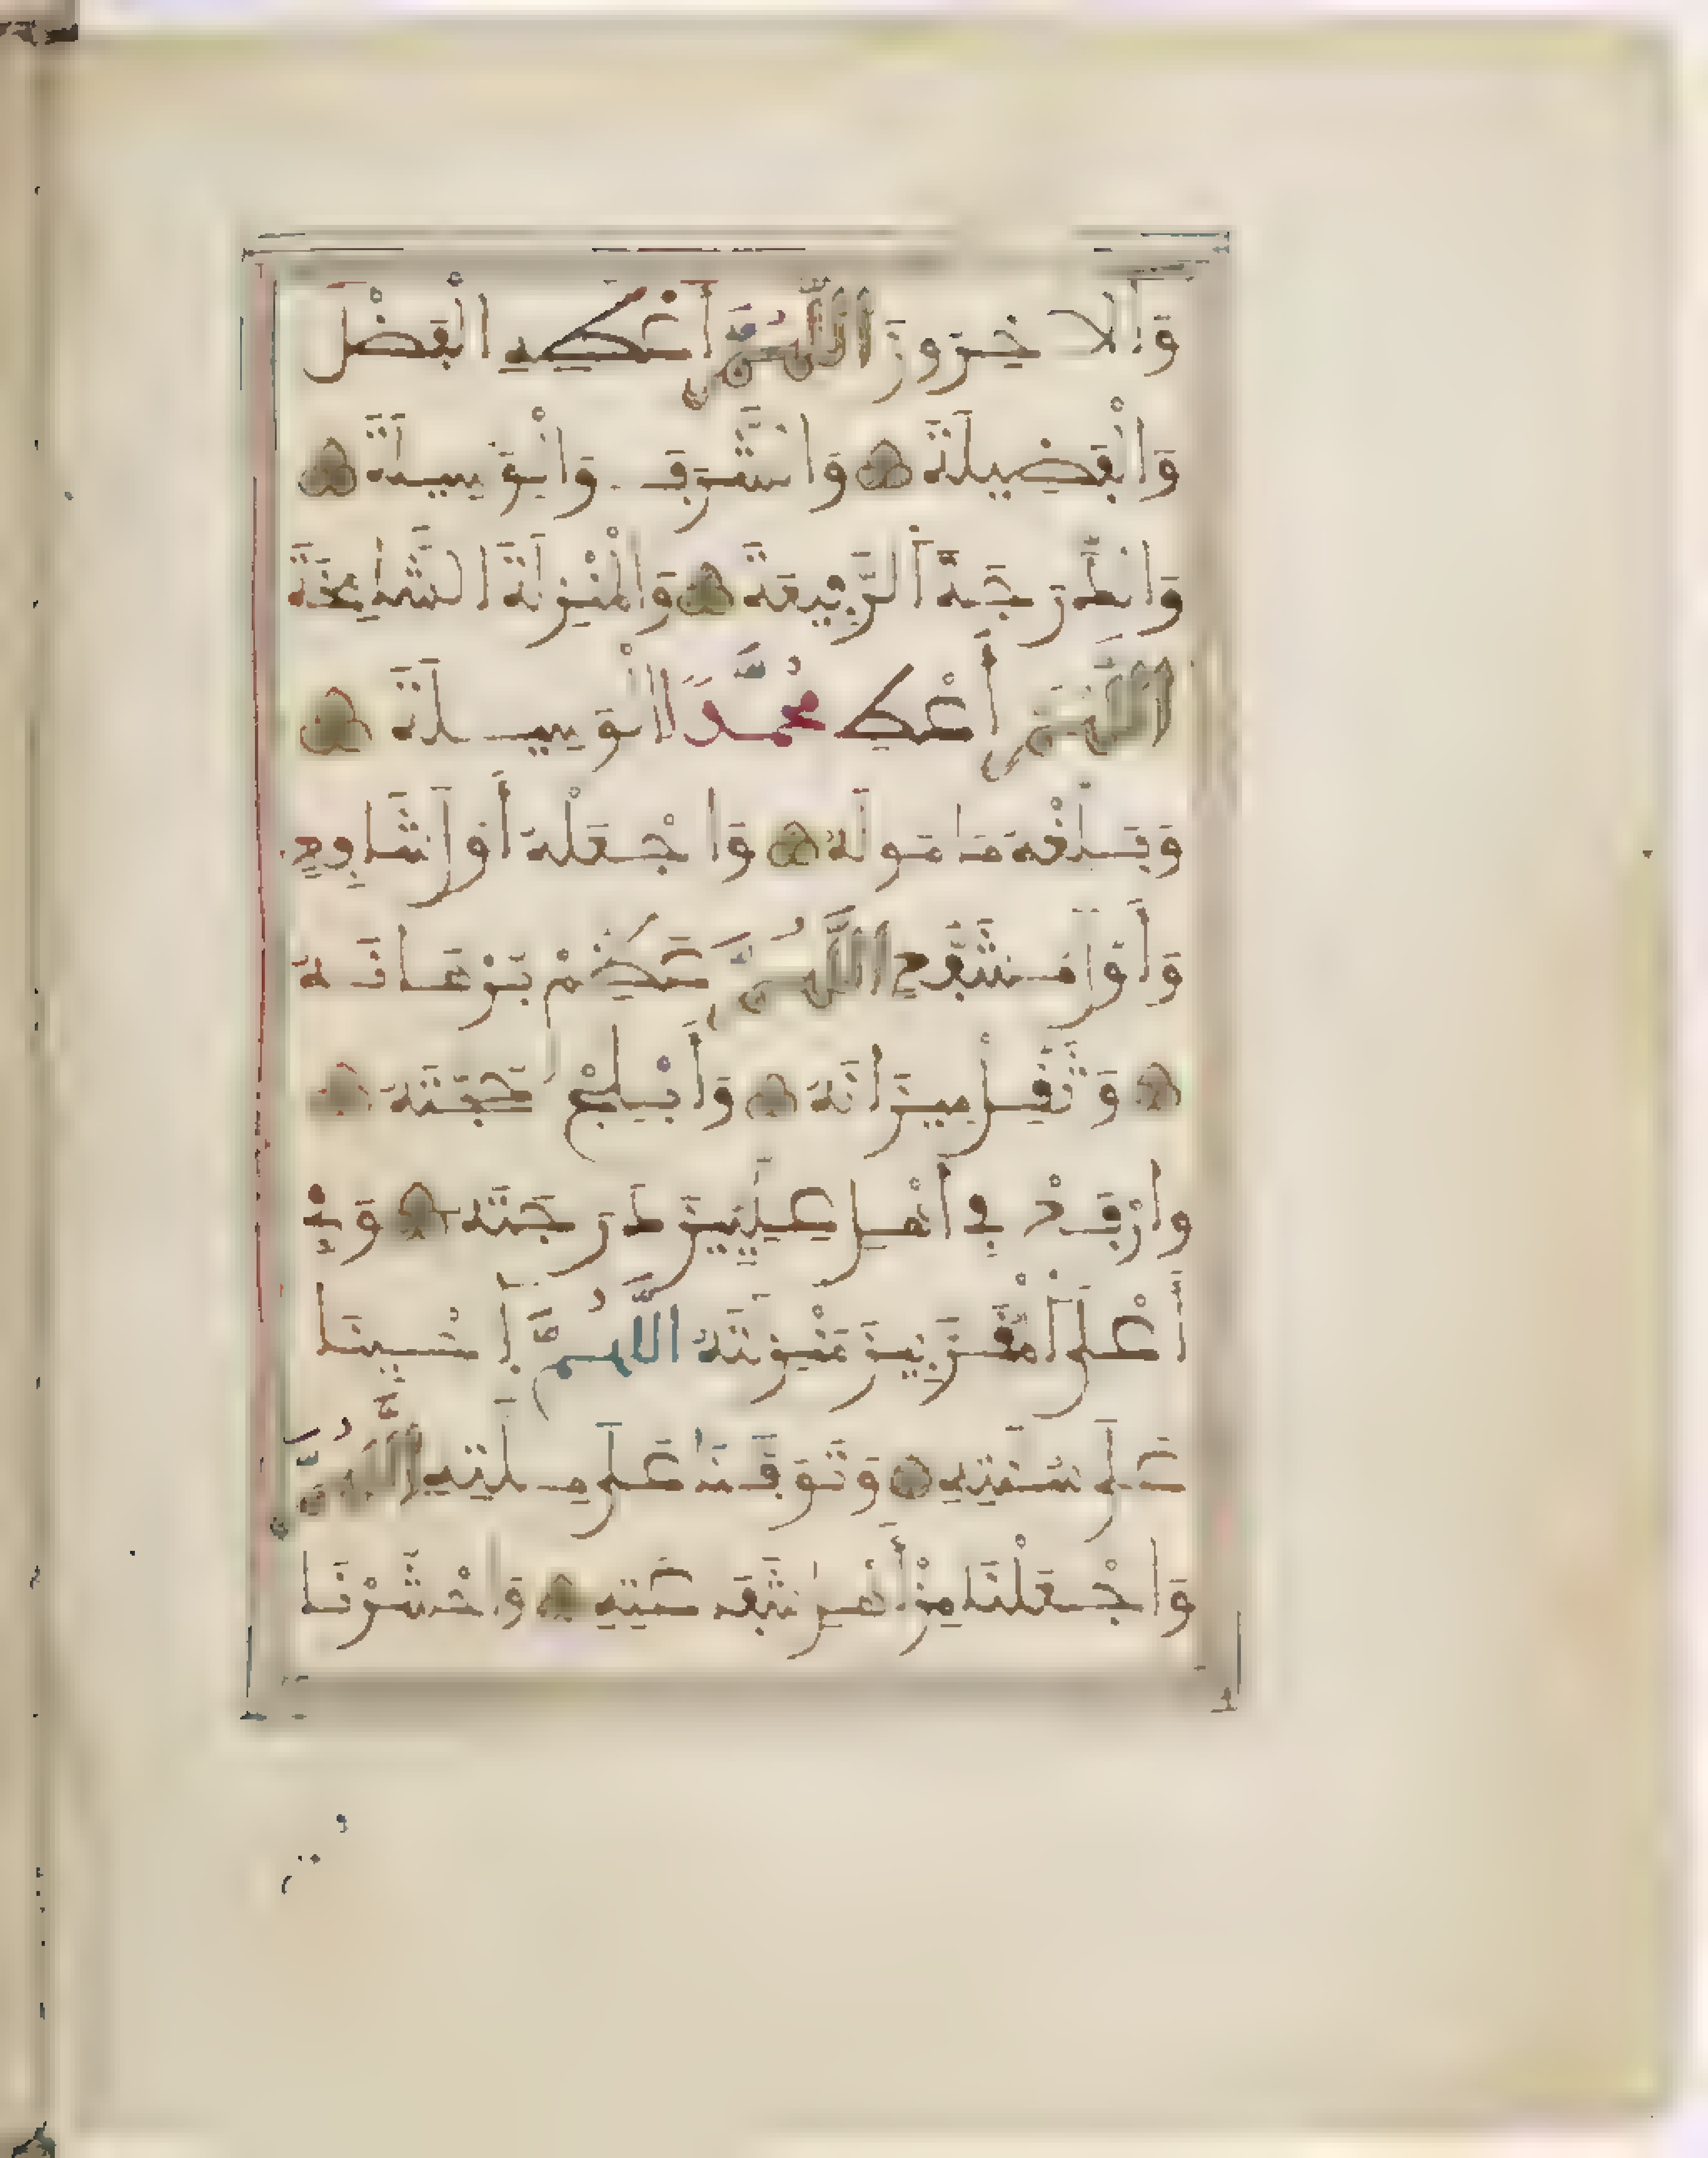 وَالَاخِرُونَ اللَّهُمَّ أَعْطِهِ الْفَضْلَ
وَالْفَضِيلَةَ وَالشَّرَفَ وَالْوَسِيلَةَ
وَالدَّرَجَةَ الرَّفِيعَةَ وَالْمَنْزِلَةَ الشَّامِخَةَ
اللَّهُمَّ أَعْطِ مُحَمَّدًا الْوَسِيلَةَ
وَبَلِّغْهُ مَامُولَهُ وَاجْعَلْهُ أَوَّلَ شَافِعٍ
وَأَوَّلَ مُشَفَّعٍ اللَّهُمَّ عَظِّمْ بُرْهَانَهُ
وَثَقِّلْ مِيزَانَهُ وَأَبْلِجْ حُجَّتَهُ
وَارْفَعْ فِي أَهْلِ عِلِّيِّينَ دَرَجَتَهُ وَفِي
أَعْلَى الْمُقَرَّبِينَ مَنْزِلَتَهُ اللَّهُمَّ أَحْيِنَا
عَلَى سُنَّتِهِ وَتَوَفَّنَا عَلَى مِلَّتِهِ اللَّهُمَّ
وَاجْعَلْنَا مِنْ أَهْلِ شَفَاعَتِهِ وَاحْشُرْنَا